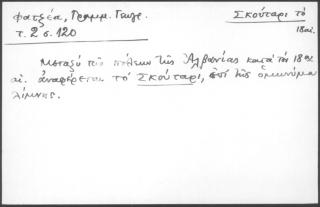 Φατζέα, Γραμμ. Γεωγρ.
Σκούταρι τό
τ. 2 σ. 120
18 αἰ.
Μεταξύ τῶν πόλεων τῆς Ἀλβανίας κατά τόν 18ον
αἰ. ἀναφέρεται τό Σκούταρι, ἐπί τῆς ὁμωνύμου
λίμνης.